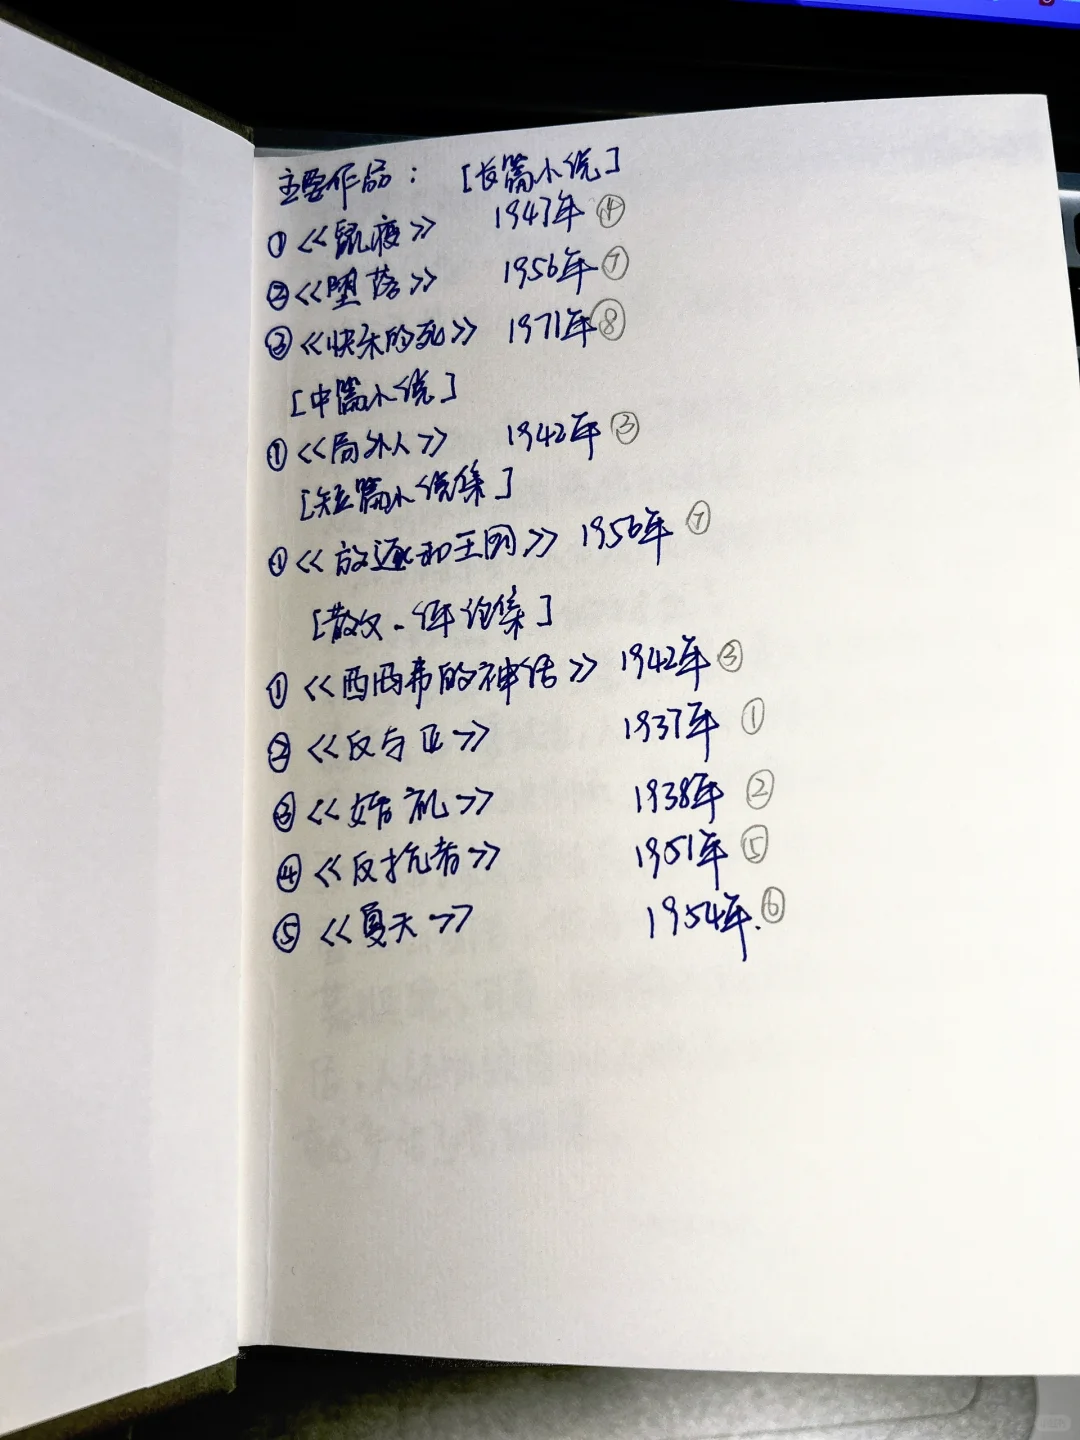 主要作品： [长篇小说]
①《鼠疫》 1947年 ④
②《堕落》 1956年 ⑦
③《快乐的死》 1971年 ⑧
[中篇小说]
①《局外人》 1942年 ③
[短篇小说集]
①《放逐和王国》 1956年 ⑦
[散文、评论集]
①《西西弗的神话》 1942年 ③
②《反与正》 1937年 ①
③《婚礼》 1938年 ②
④《反抗者》 1951年 ⑤
⑤《夏天》 1954年. ⑥